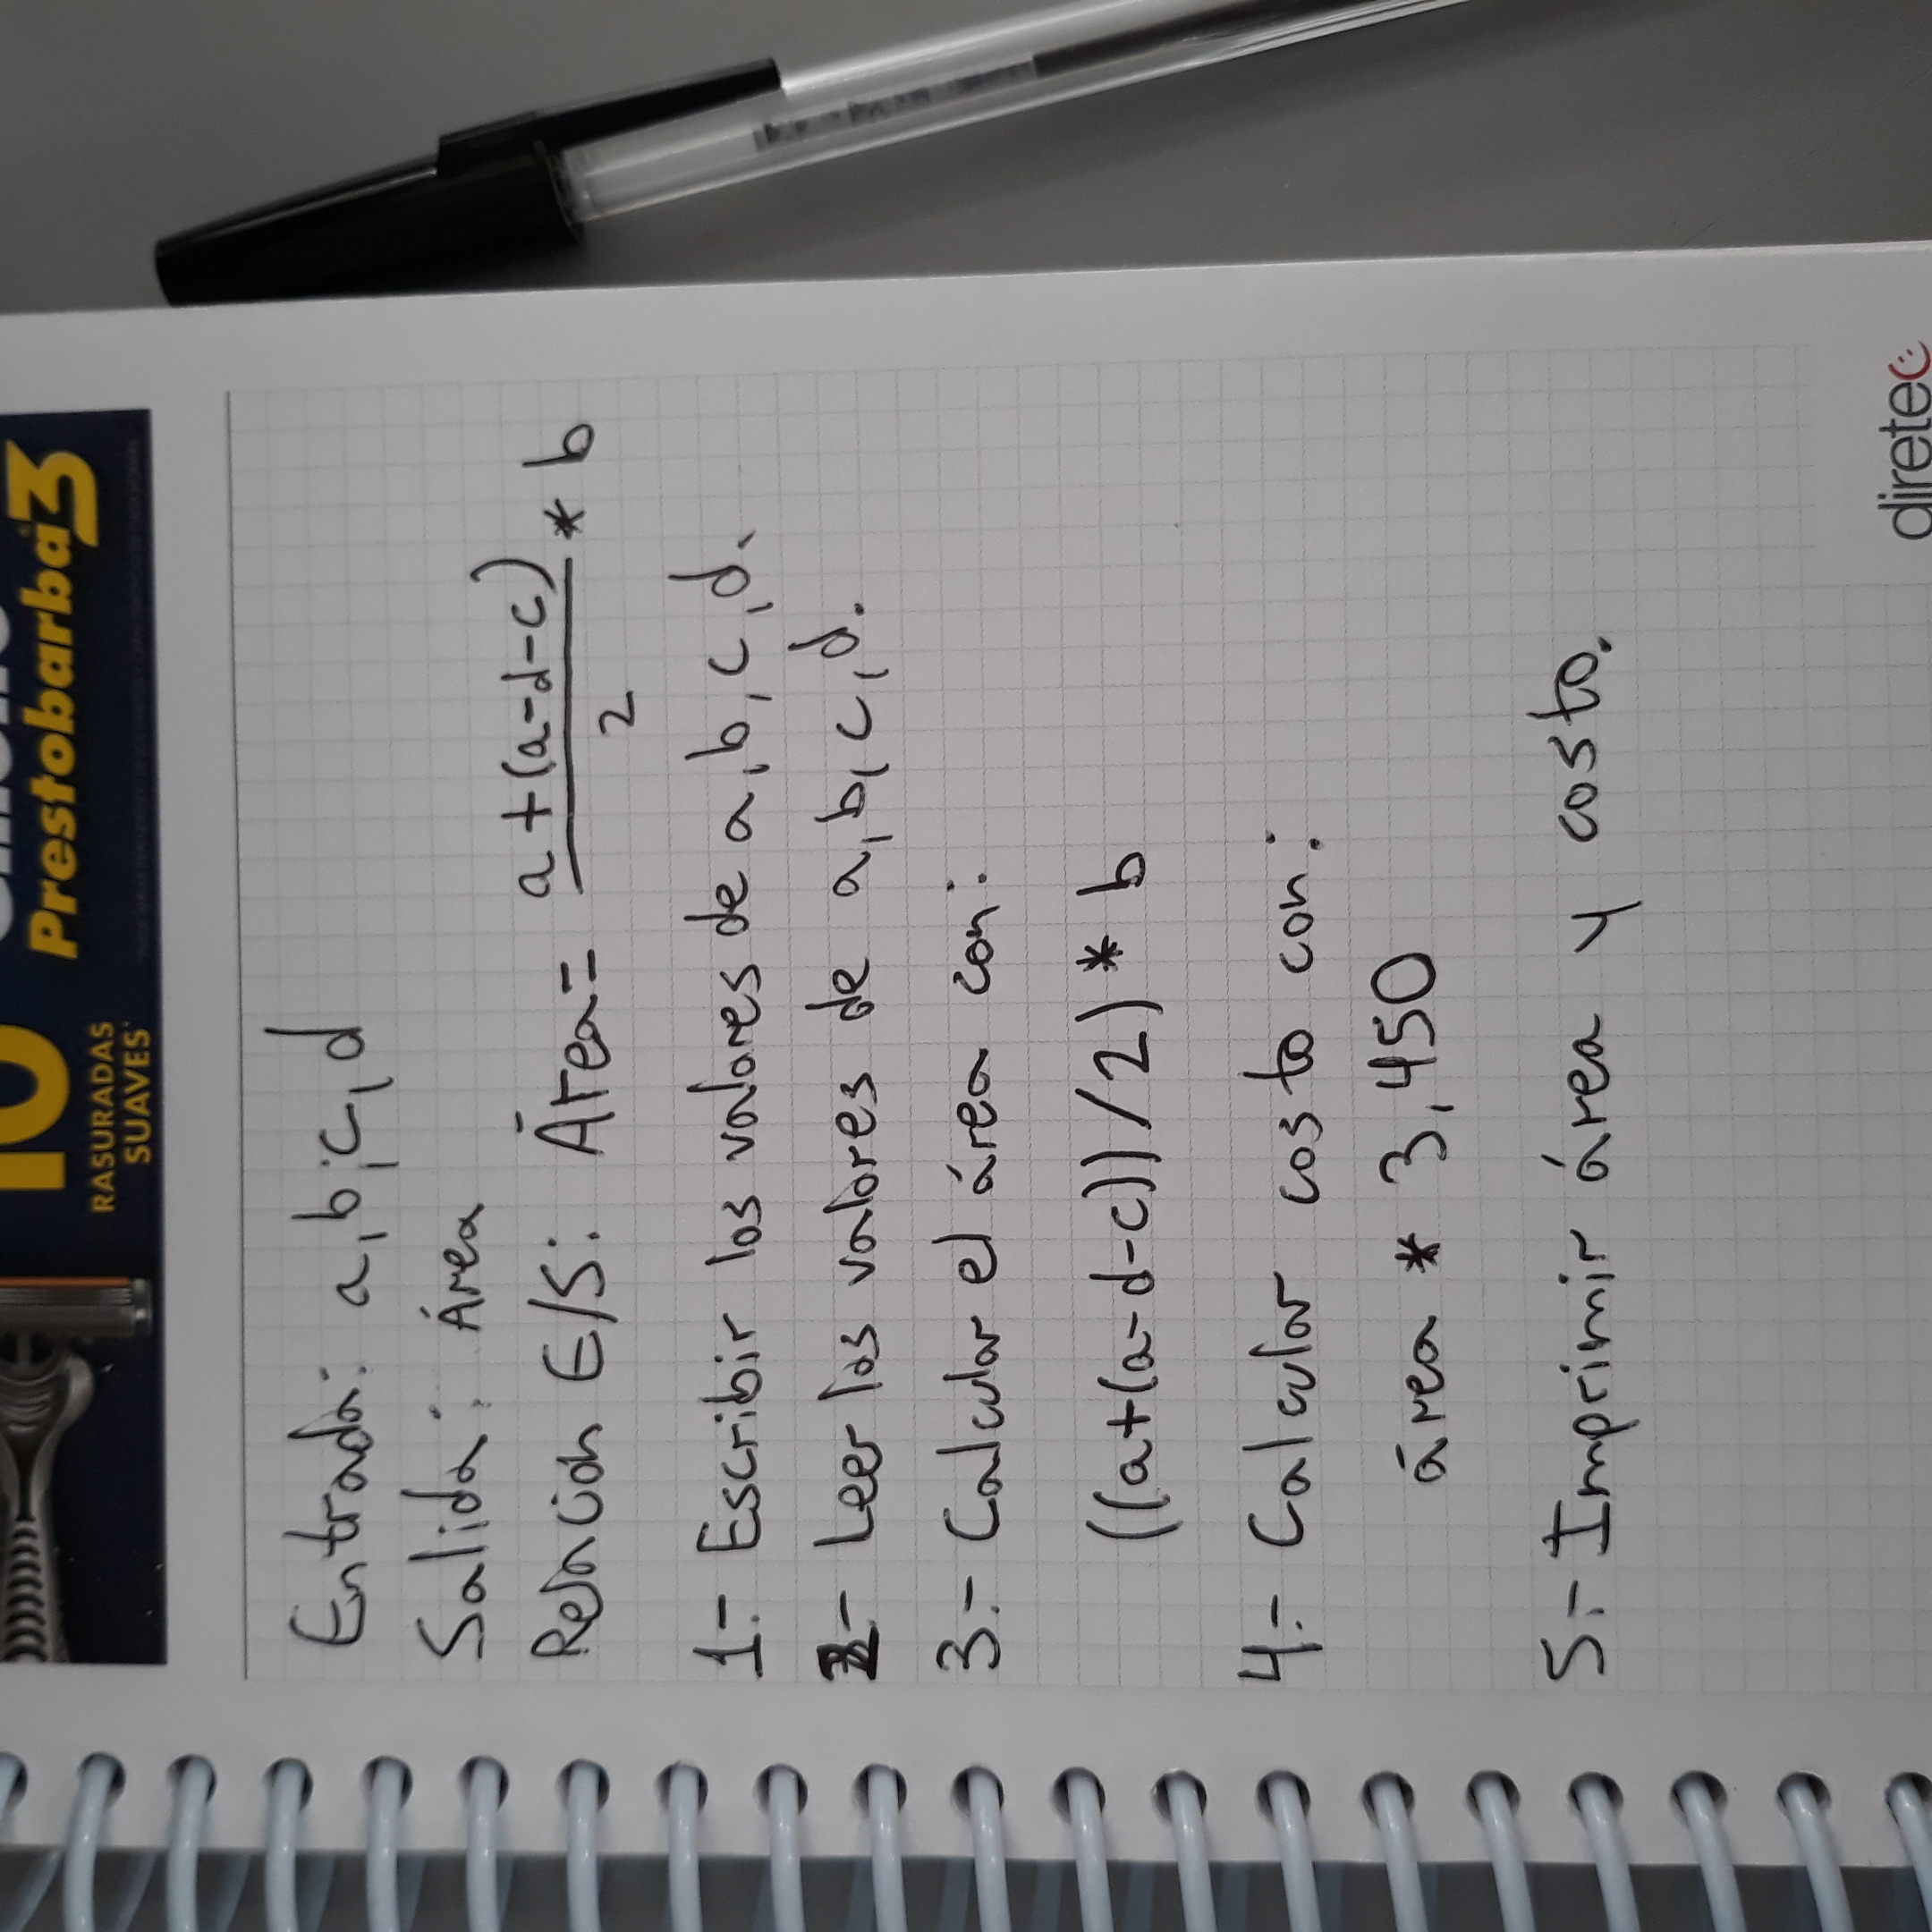 10
RASURADAS
SUAVES
Prestobarba3
Entrada: a, b, c, d
Salida: Área
Relación E/S: Área = a + (a-d-c) / 2 * b
1.- Escribir los valores de a, b, c, d.
2- Leer los valores de a, b, c, d.
3.- Calcular el área con:
((a+(a-d-c))/2) * b
4.- Calcular costo con:
área * 3,450
5.- Imprimir área y costo.
diretec